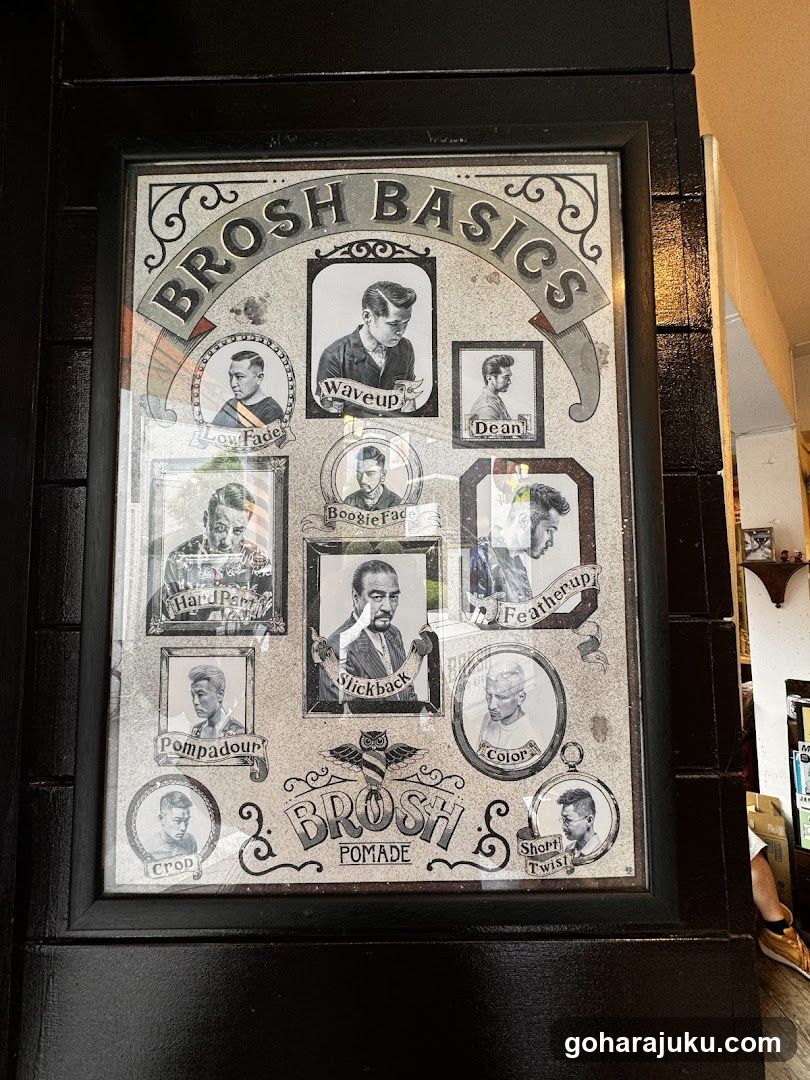 BROSH BASICS
Waveup
Low Fade
Dean
Boogie Fade
Hard Part
Featherup
Slickback
Pompadour
Color
BROSH
POMADE
Crop
Short
Twist
goharajuku.com